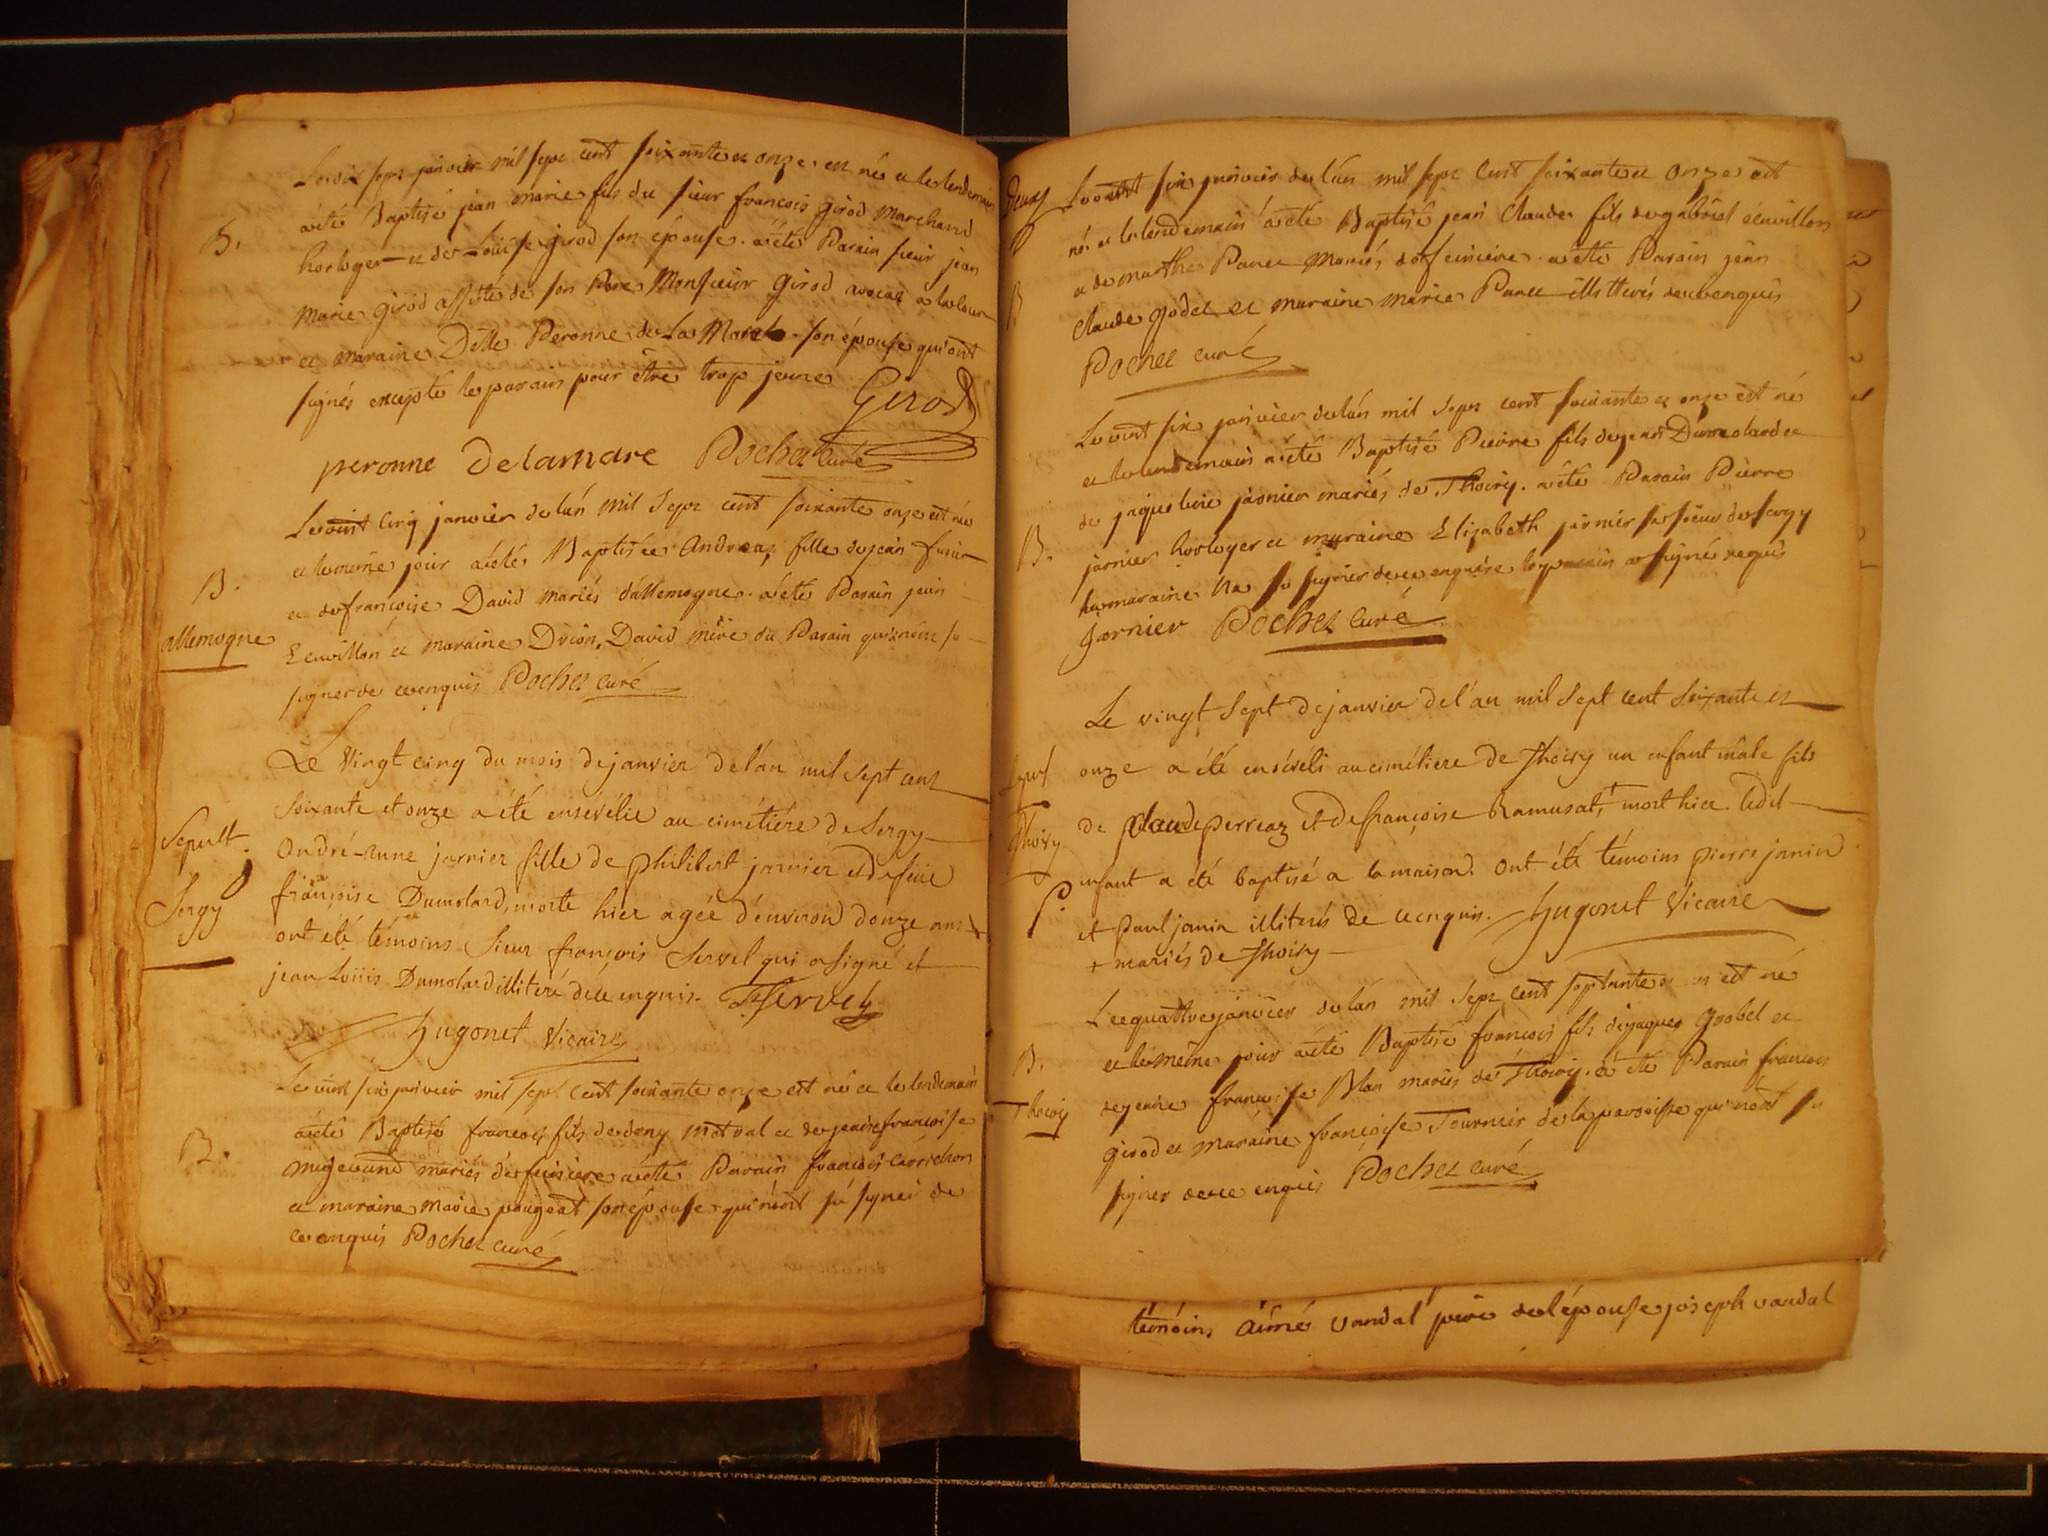 Le dix sept janvier mil sept cent soixante et onze est né et le lendemain
a été Baptisé jean marie fils du sieur francois girod Marchand
B.
horloger et de Louise girod son épouse. a été Parain sieur jean
marie girod assisté de son Pere Monsieur girod avocat a la Cour
et maraine Delle Peronne de La Mare son épouse qui ont
signés excepté le parain pour être trop jeune Girod
peronne Delamare Pochet curé
Le vint cinq janvier de lán mil Sept cent soixante onze est née
et le même jour a été Baptisée Andrea fille de jean
B.
et de françoise David mariés d'allemogne. a été Parain jean
allemogne
Ecuvillon et maraine David mere du Parain qui n'ont su
signer de ce enquis Pochet curé
Le Vingt cinq du mois de janvier de l'an mil sept cent
soixante et onze a été ensévélie au cimétiére de Sergy
Sepult.
André-aune jarnier fille de philibert jarnier et de feüe
Sergy
françoise Dumolard, morte hier agée d'environ douze ans
ont été témoins Sieur françois Servel qui a signé et
jean Loüis Dumolard illiteré de ce enquis. FServel
hugonet Vicaire
Le vint six janvier mil sept cent soixante onze est né et le lendemain
a été Baptisé francois fils de deny Motval et de jeanefrancoise
B.
migevand mariés de feniere a été Parain francois
et maraine marie pougeat son épouse qui n'ont sú signer de
ce enquis Pochet curé
Le vint six janvier de lán mil sept cent soixante et onze est
né et le lendemain a été Baptisé jean Claude fils de gabriel écuvillon
et de marthe Panet mariés de feniere. a été Parain jean
B
Claude godet et maraine marie Panet illitterés de ce enquis
Pochet curé
Le vint six janvier de lán mil Sept cent soixante et onze est né
et le lendemain a été Baptisé Pierre fils de jean Dumolard et
de jaqueline jarnier mariés de Thoiry. a été Parain Pierre
B.
jarnier horloger et maraine Elizabeth jarnier sa soeur de sergy
la maraine na su signer de ce enquise le parain a signé requis
Jarnier Pochet Curé
Le vingt Sept de janvier de l'an mil Sept cent Soixante et
Sepul
onze a été ensévéli au cimétiere de Thoiry un enfant mâle fils
de Claude perreaz et de françoise Ramusat,+ mort hier. Ledit
Thoiry
enfant a été baptisé a la maison. Ont été témoins pierre janin
P.
et paul janin illiterés de ce enquis. hugonet Vicaire
+ mariés de Thoiry
Le quattre janvier de lán mil Sept cent septante est né
B.
et le même jour a été Baptisé francois fils de jaques grobel et
Thoiry
de jeane francoise Blan mariés de Thoiry. a été Parain francois
girod et maraine francoise Tournier de la paroisse qui n'ont su
signer de ce enquis Pochet curé
témoins aimé vandal pere de l'épouse joseph vandal